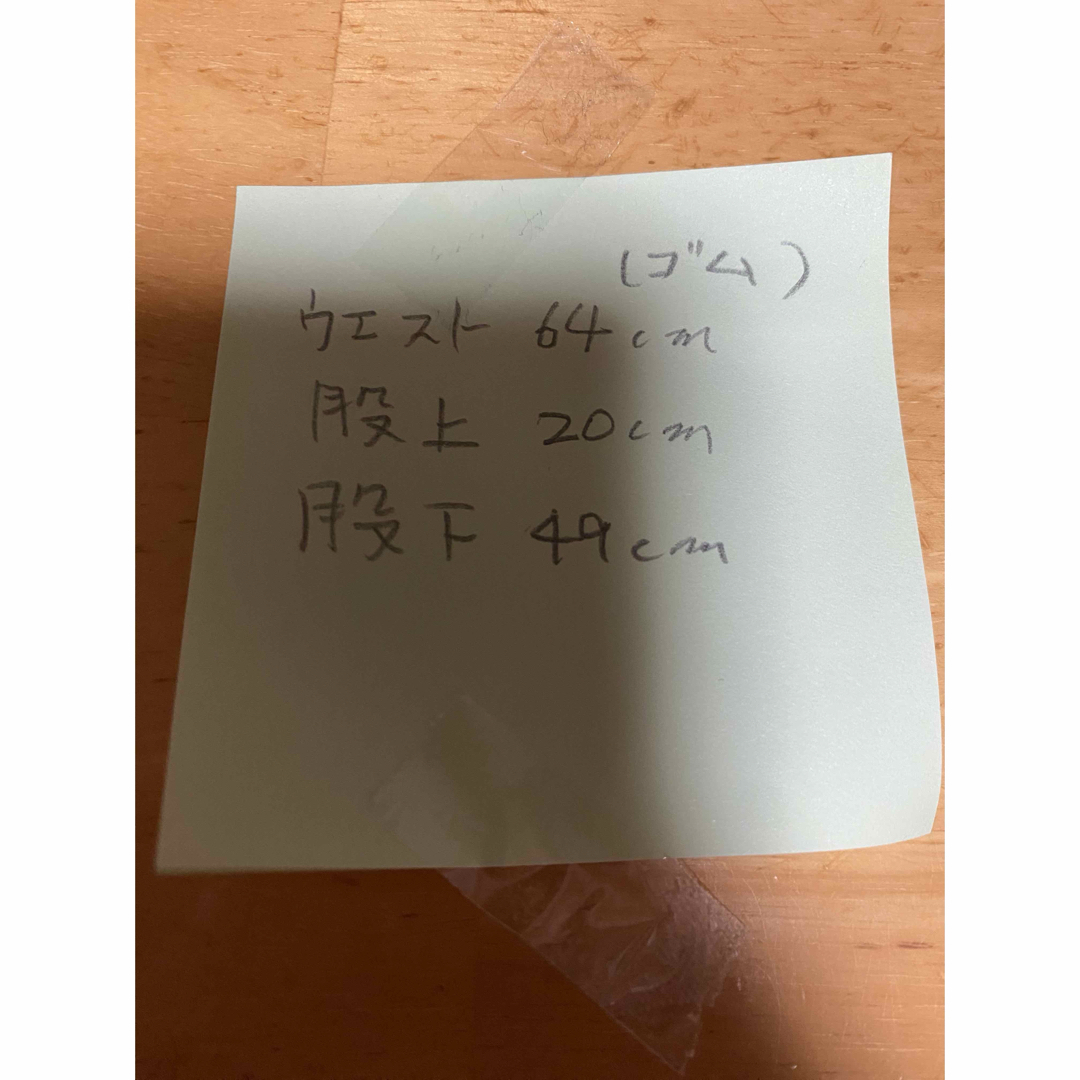 (ゴム)
ウエスト 64cm
股上 20cm
股下 49cm